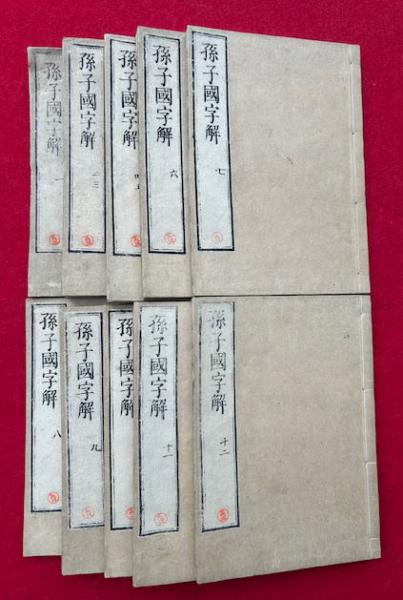 孫子國字解 一
孫子國字解 二三
孫子國字解 四五
孫子國字解 六
孫子國字解 七
孫子國字解 八
孫子國字解 九
孫子國字解
孫子國字解 十一
孫子國字解 十二